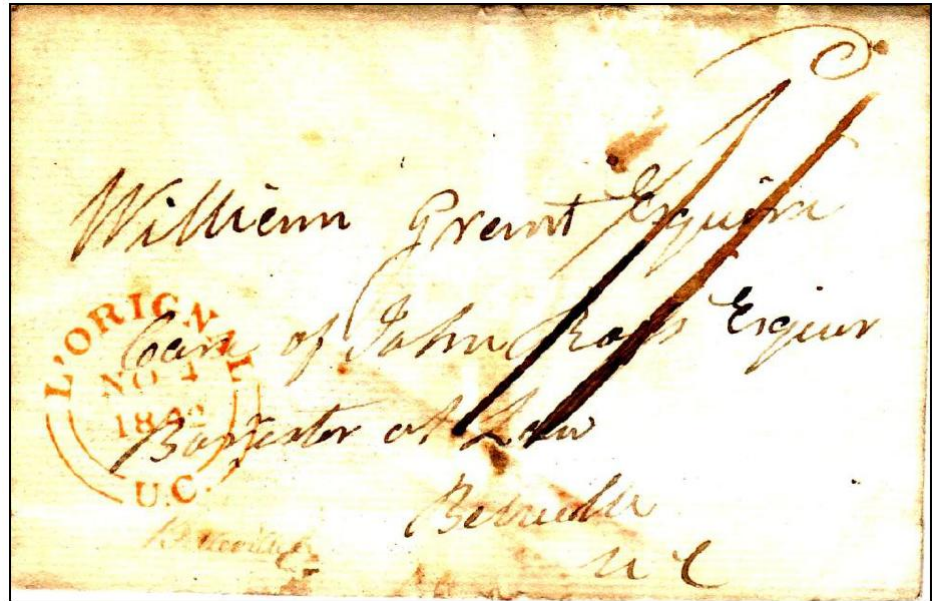 William Grant Esquire
Care of John Ross Esquire
Barrister at Law
Belleville
U C
L'ORIGNAL
NO 4
1842
U.C.